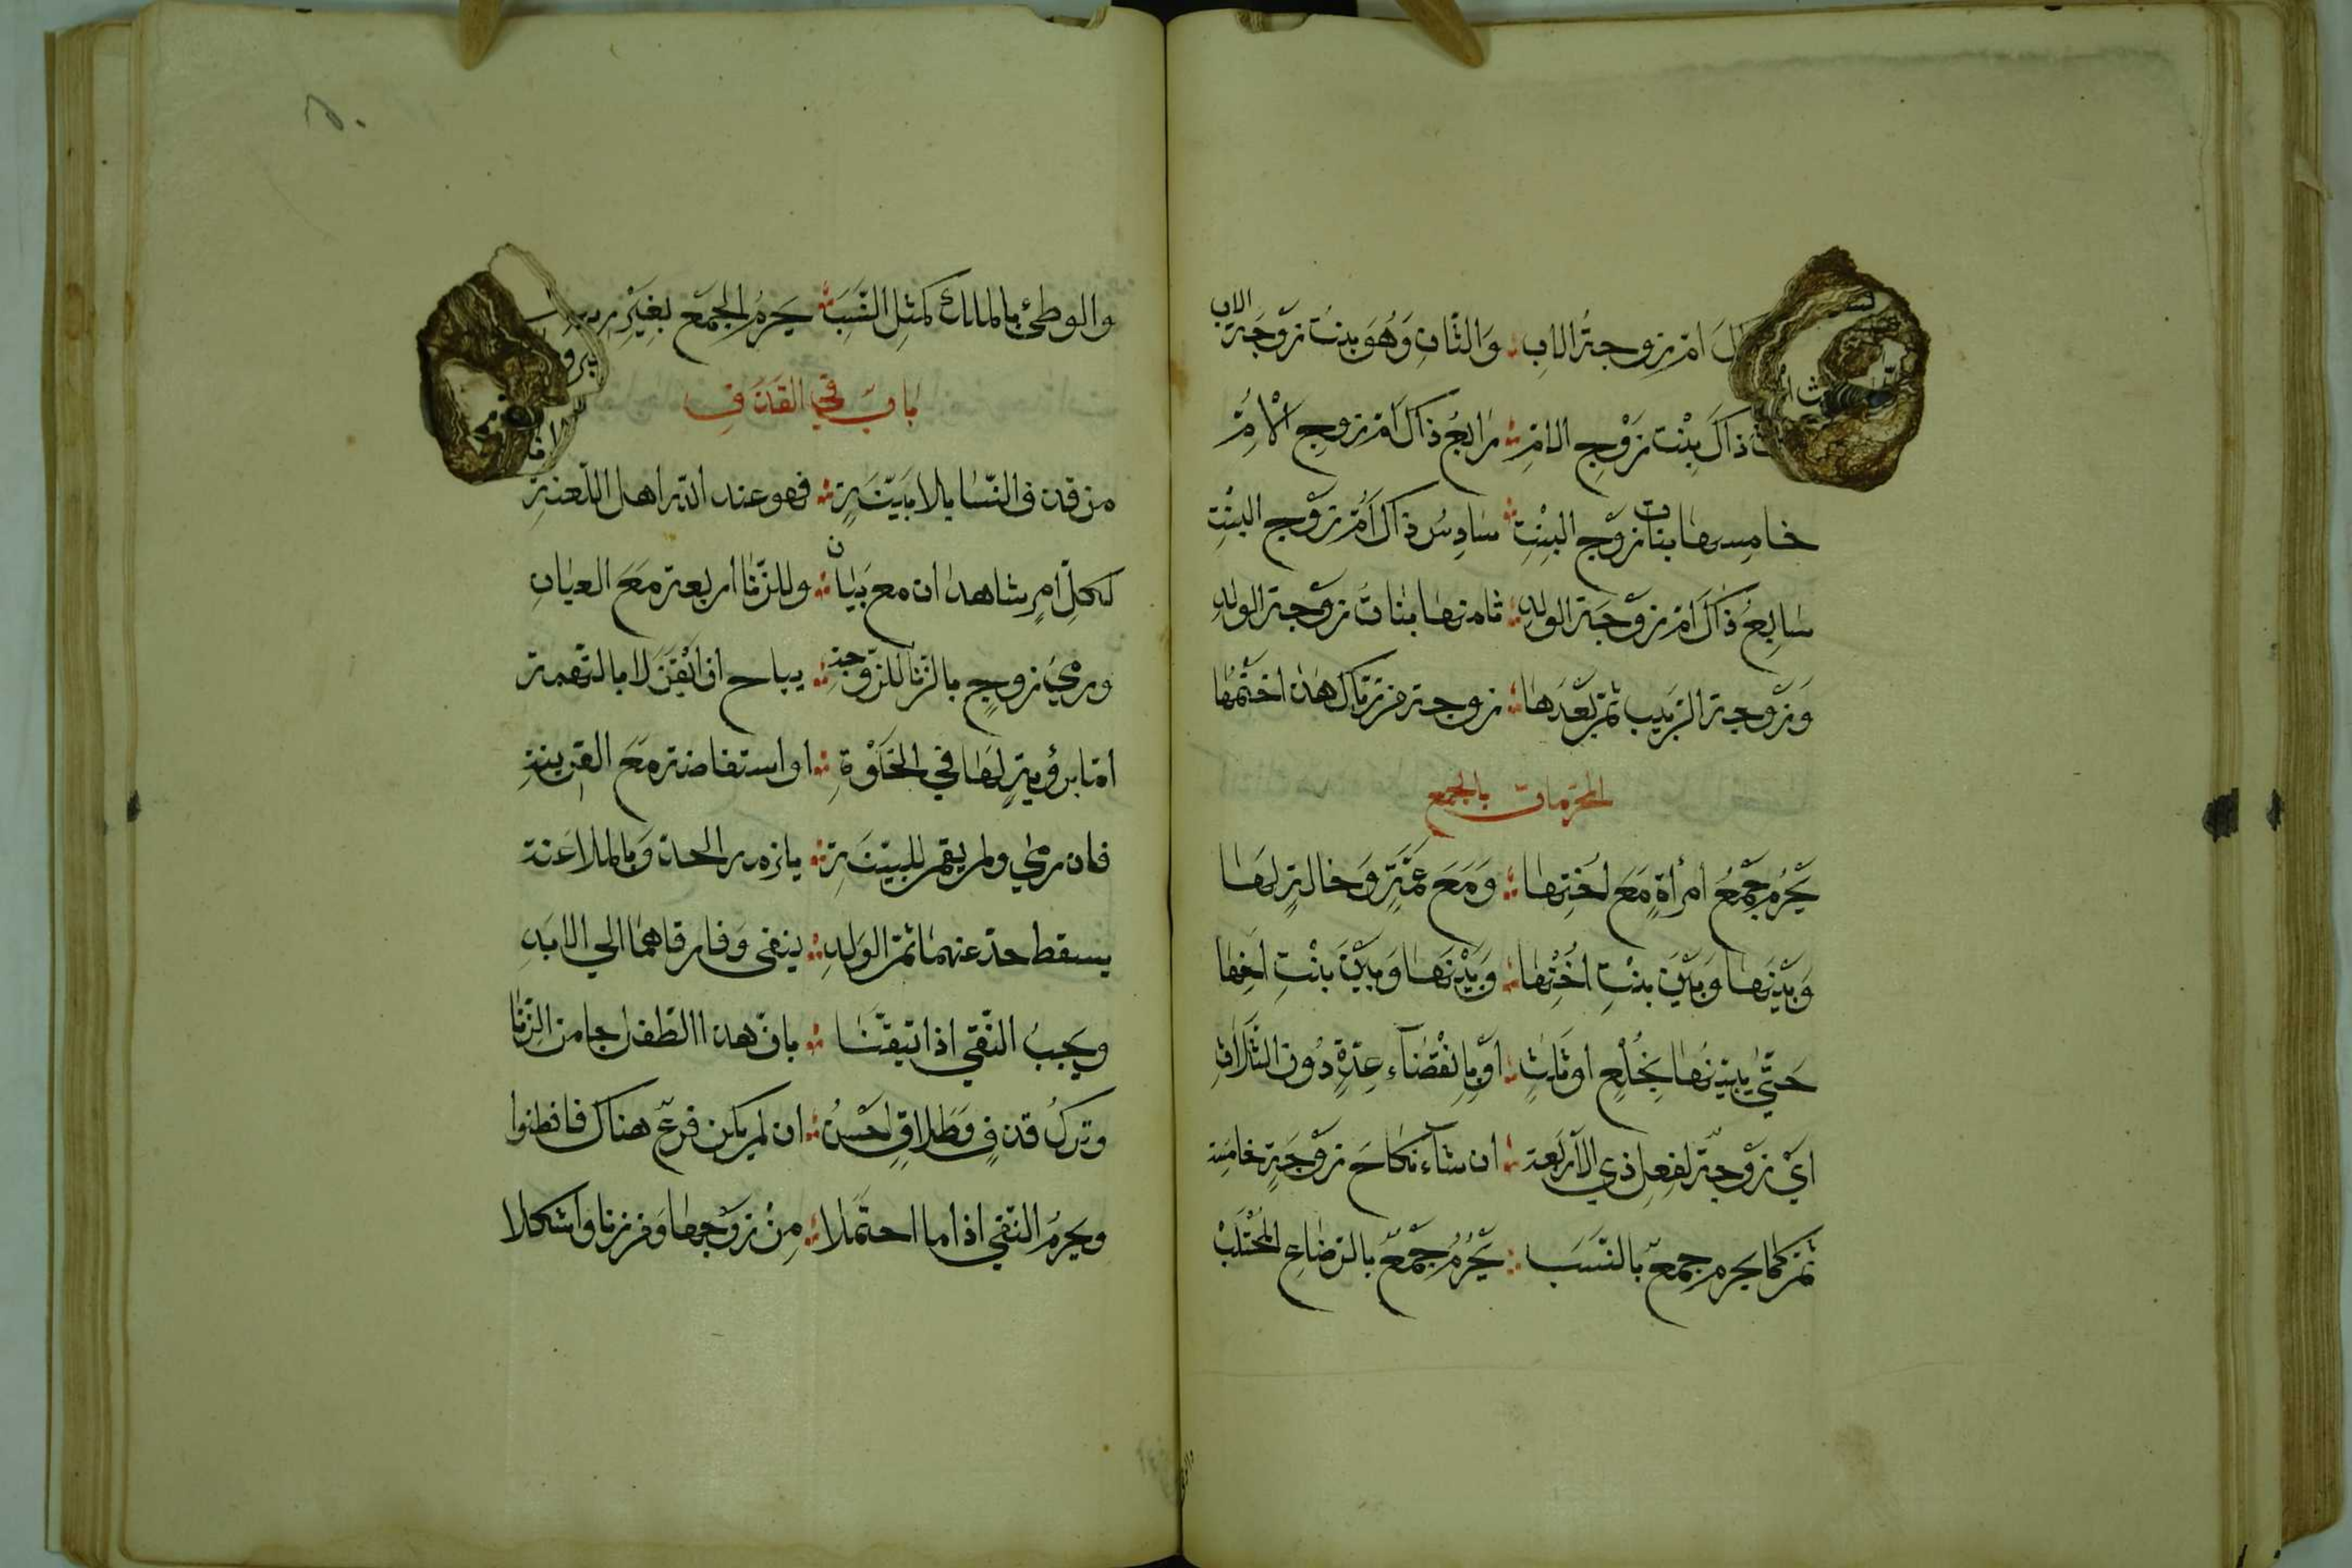 ام زوجة الاب ؛ وَالثانِ وَهُوَ بنت زَوْجَة الاب
ذاكَ بِنْت زَوْجِ الامِّ ؛ رَابعُ ذاكَ اُمّ زوجِ الْاُمِّ
خامِسها بنات زَوْج البِنْتِ ؛ سَادِسُ ذاكَ اُمّ زَوْجِ البنْتِ
سَابِعُ ذاكَ امّ زوْجَة الولدِ ؛ ثامنها بنات زوْجة الولدِ
وَزَوْجة الرَّبيب ثمّ بَعْدَهَا ؛ زوجة مَن رَبّاكَ هذا اختمْهَا
المحرّمات بالجمع
يَحْرُم جَمْعُ امرأةٍ مَعَ اُخْتِهَا ؛ وَمَعَ عمَّةٍ وَخالةٍ لهَا
وَبَيْنَهَا وَبَيْنَ بنْتِ اُخْتِهَا ؛ وَبَيْنَهَا وَبَيْنَ بنْتِ اَخِهَا
حَتَّي يُبينَهَا بِخُلْعٍ او ثَلثٍ ؛ اوْ بِانْقضَآءِ عِدّةٍ دُونَ الثَلَاثِ
ايْ زَوْجة لفِعِل ذي الاَرْبَعة ؛ ان شآء نكَاحَ زَوْجَةٍ خامِسَة
ثمّ كما يحرم جمعٌ بالنّسَب ؛ يَحْرُمُ جَمْعٌ بالرّضَاعِ المُجْتَلَبْ
والوطئ بالملك كمثل النَّسَبَ ؛ يَحرمُ الجمع بِغَيْر
بَابٌ في القَذف
من قذف النّسا بلا بَيّنَةٍ ؛ فهو عند الله اهل اللّعنةِ
لكلِّ امٍ شاهدان مع بَيان ؛ وللزّنا اربعة مَعَ العيانِ
ورميُ زوجٍ بالزّنا للزّوجة ؛ يباح ان اَيْقنَ لا بالتّهمة
امّا برؤيةٍ لهَا في الخَلْوَةِ ؛ او استفاضة مَعَ القرينةِ
فان رمي ولم يقم للبيّنَةِ ؛ يلزمه الحدّ وَبالملاعَنة
يسقط حدّ عنهمَا ثمّ الوَلدِ ؛ ينفى وَفارقاهمَا الي الابَدِ
ويجبُ النّفي اذا تيقّنَا ؛ بانّ هذا الطّفل جا من الزّنا
وتركُ قذفٍ وَطلاقٍ احْسنُ ؛ ان لم يكن فرعٌ هناكَ فافطنوا
ويحرمُ النّفي اذا ما احتَمَلا ؛ مِنْ زوْجهَا وَمن زنا واشكلا